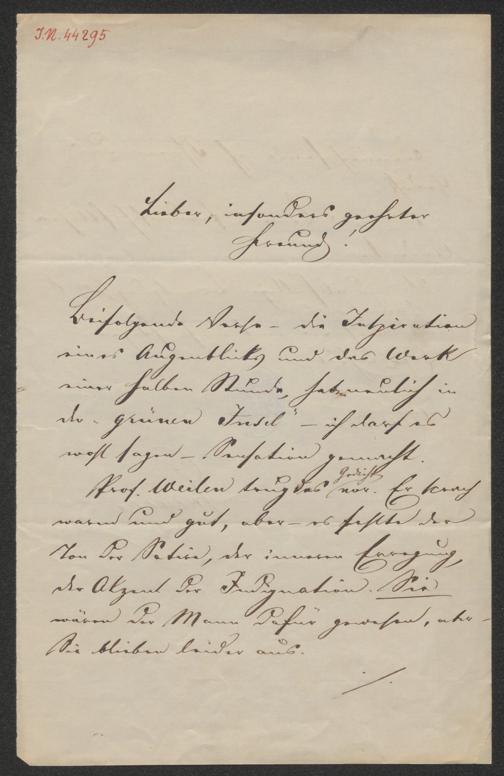 I.N. 44295
Lieber, insonders geehrter
Freund!
Beifolgende Verse – die Inspiration
eines Augenblicks und das Werk
einer halben Stunde, hat neulich in
der „grünen Insel" – ich darf es
wohl sagen – Sensation gemacht.
Prof. Weilen trug das Gedicht vor. Er sprach
warm und gut, aber – es fehlte der
Ton der Satire, der inneren Erregung,
der Akzent der Indignation. Sie
wären der Mann dafür gewesen, aber –
Sie blieben leider aus.
./.